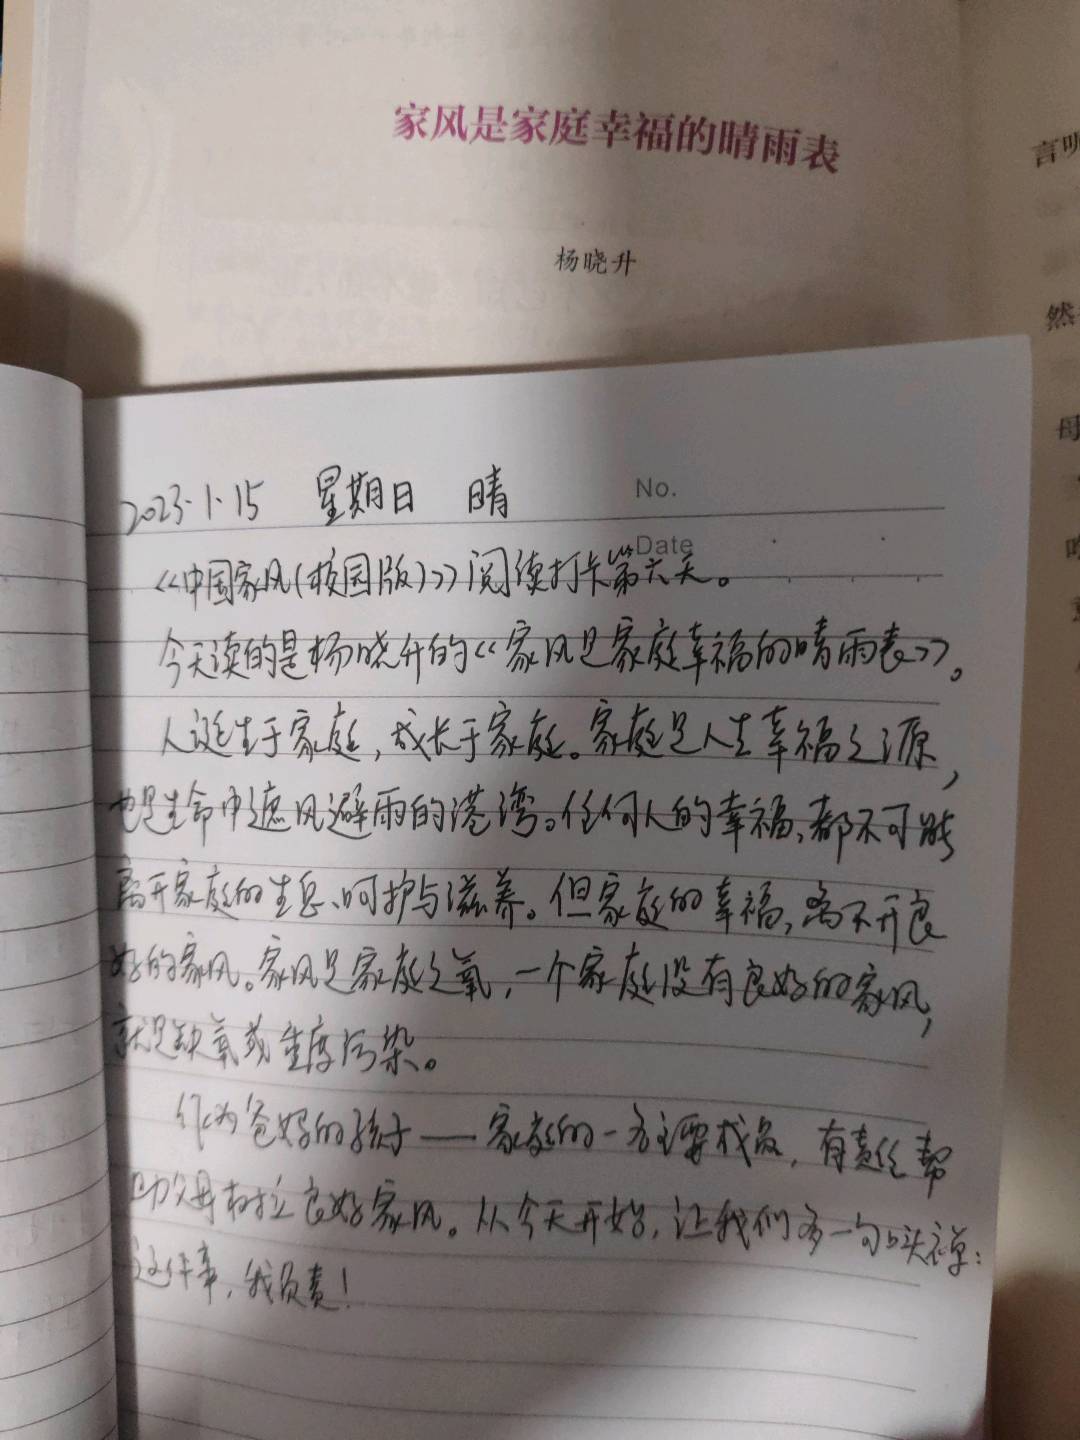 家风是家庭幸福的晴雨表
杨晓升
言听
然
母
No.
Date
2023.1.15 星期日 晴
<<中国家风(校园版)>>阅读打卡第六天。
今天读的是杨晓升的<<家风是家庭幸福的晴雨表>>。
人诞生于家庭,成长于家庭。家庭是人生幸福之源,
也是生命中遮风避雨的港湾。任何人的幸福,都不可能
离开家庭的生息、呵护与滋养。但家庭的幸福,离不开良
好的家风。家风是家庭之氧,一个家庭没有良好的家风,
就是缺氧或重度污染。
作为爸妈的孩子——家庭的一名主要成员,有责任帮
助父母树立良好家风。从今天开始,让我们多一句口头禅:
这件事,我负责!